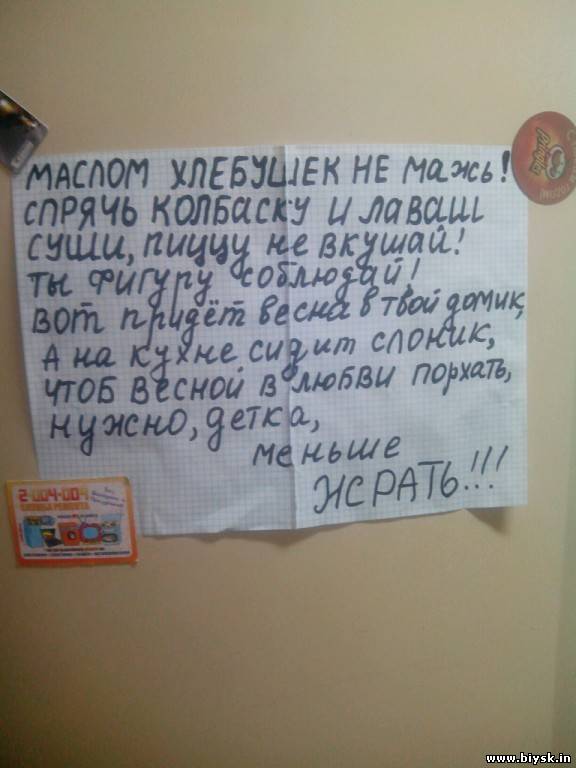 МАСЛОМ ХЛЕБУШЕК НЕ мажь!
СПРЯЧЬ КОЛБАСКУ И ЛАВАШ
СУШИ, ПИЦЦУ не вкушай!
ТЫ ФИГУРУ СОБЛЮДАЙ!
ВОТ ПРИДЁТ весна в твой домик,
А на кухне сидит слоник,
ЧТОБ ВЕСНОЙ В ЛЮБВИ ПОРХАТЬ,
НУЖНО, ДЕТКА,
меньше
ЖРАТЬ!!!
2-004-004
www.biysk.in